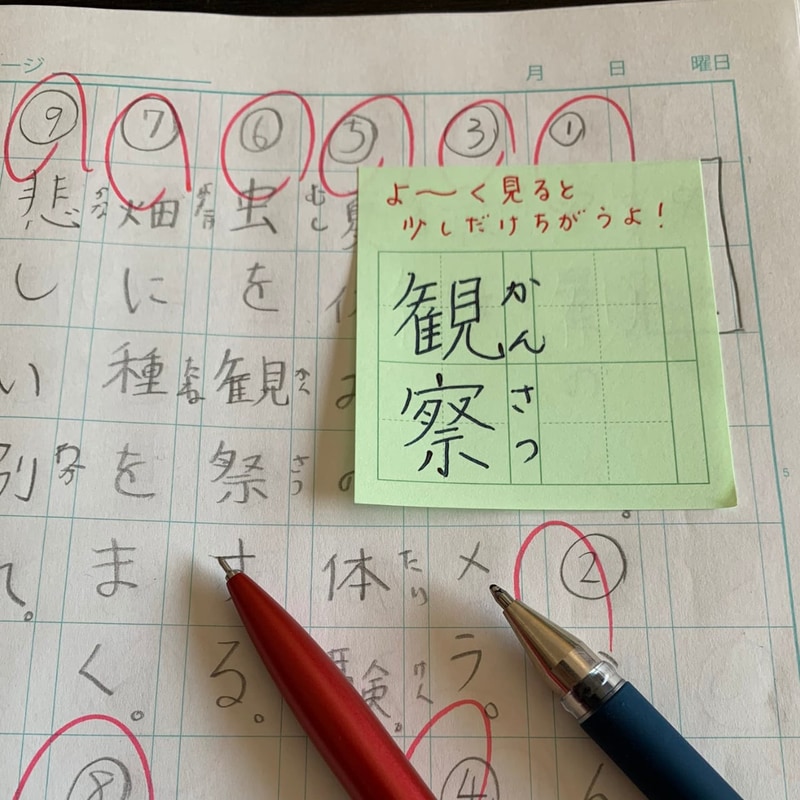 ージ 月 日 曜日
よ〜く見ると
少しだけちがうよ!
観察
かんさつ
①
②
③
メラ。
④
⑤
体験。
たい
けん
⑥
虫を観祭する。
むし
かん
さつ
⑦
畑に種をまく。
たね
⑧
⑨
悲しい別
かな